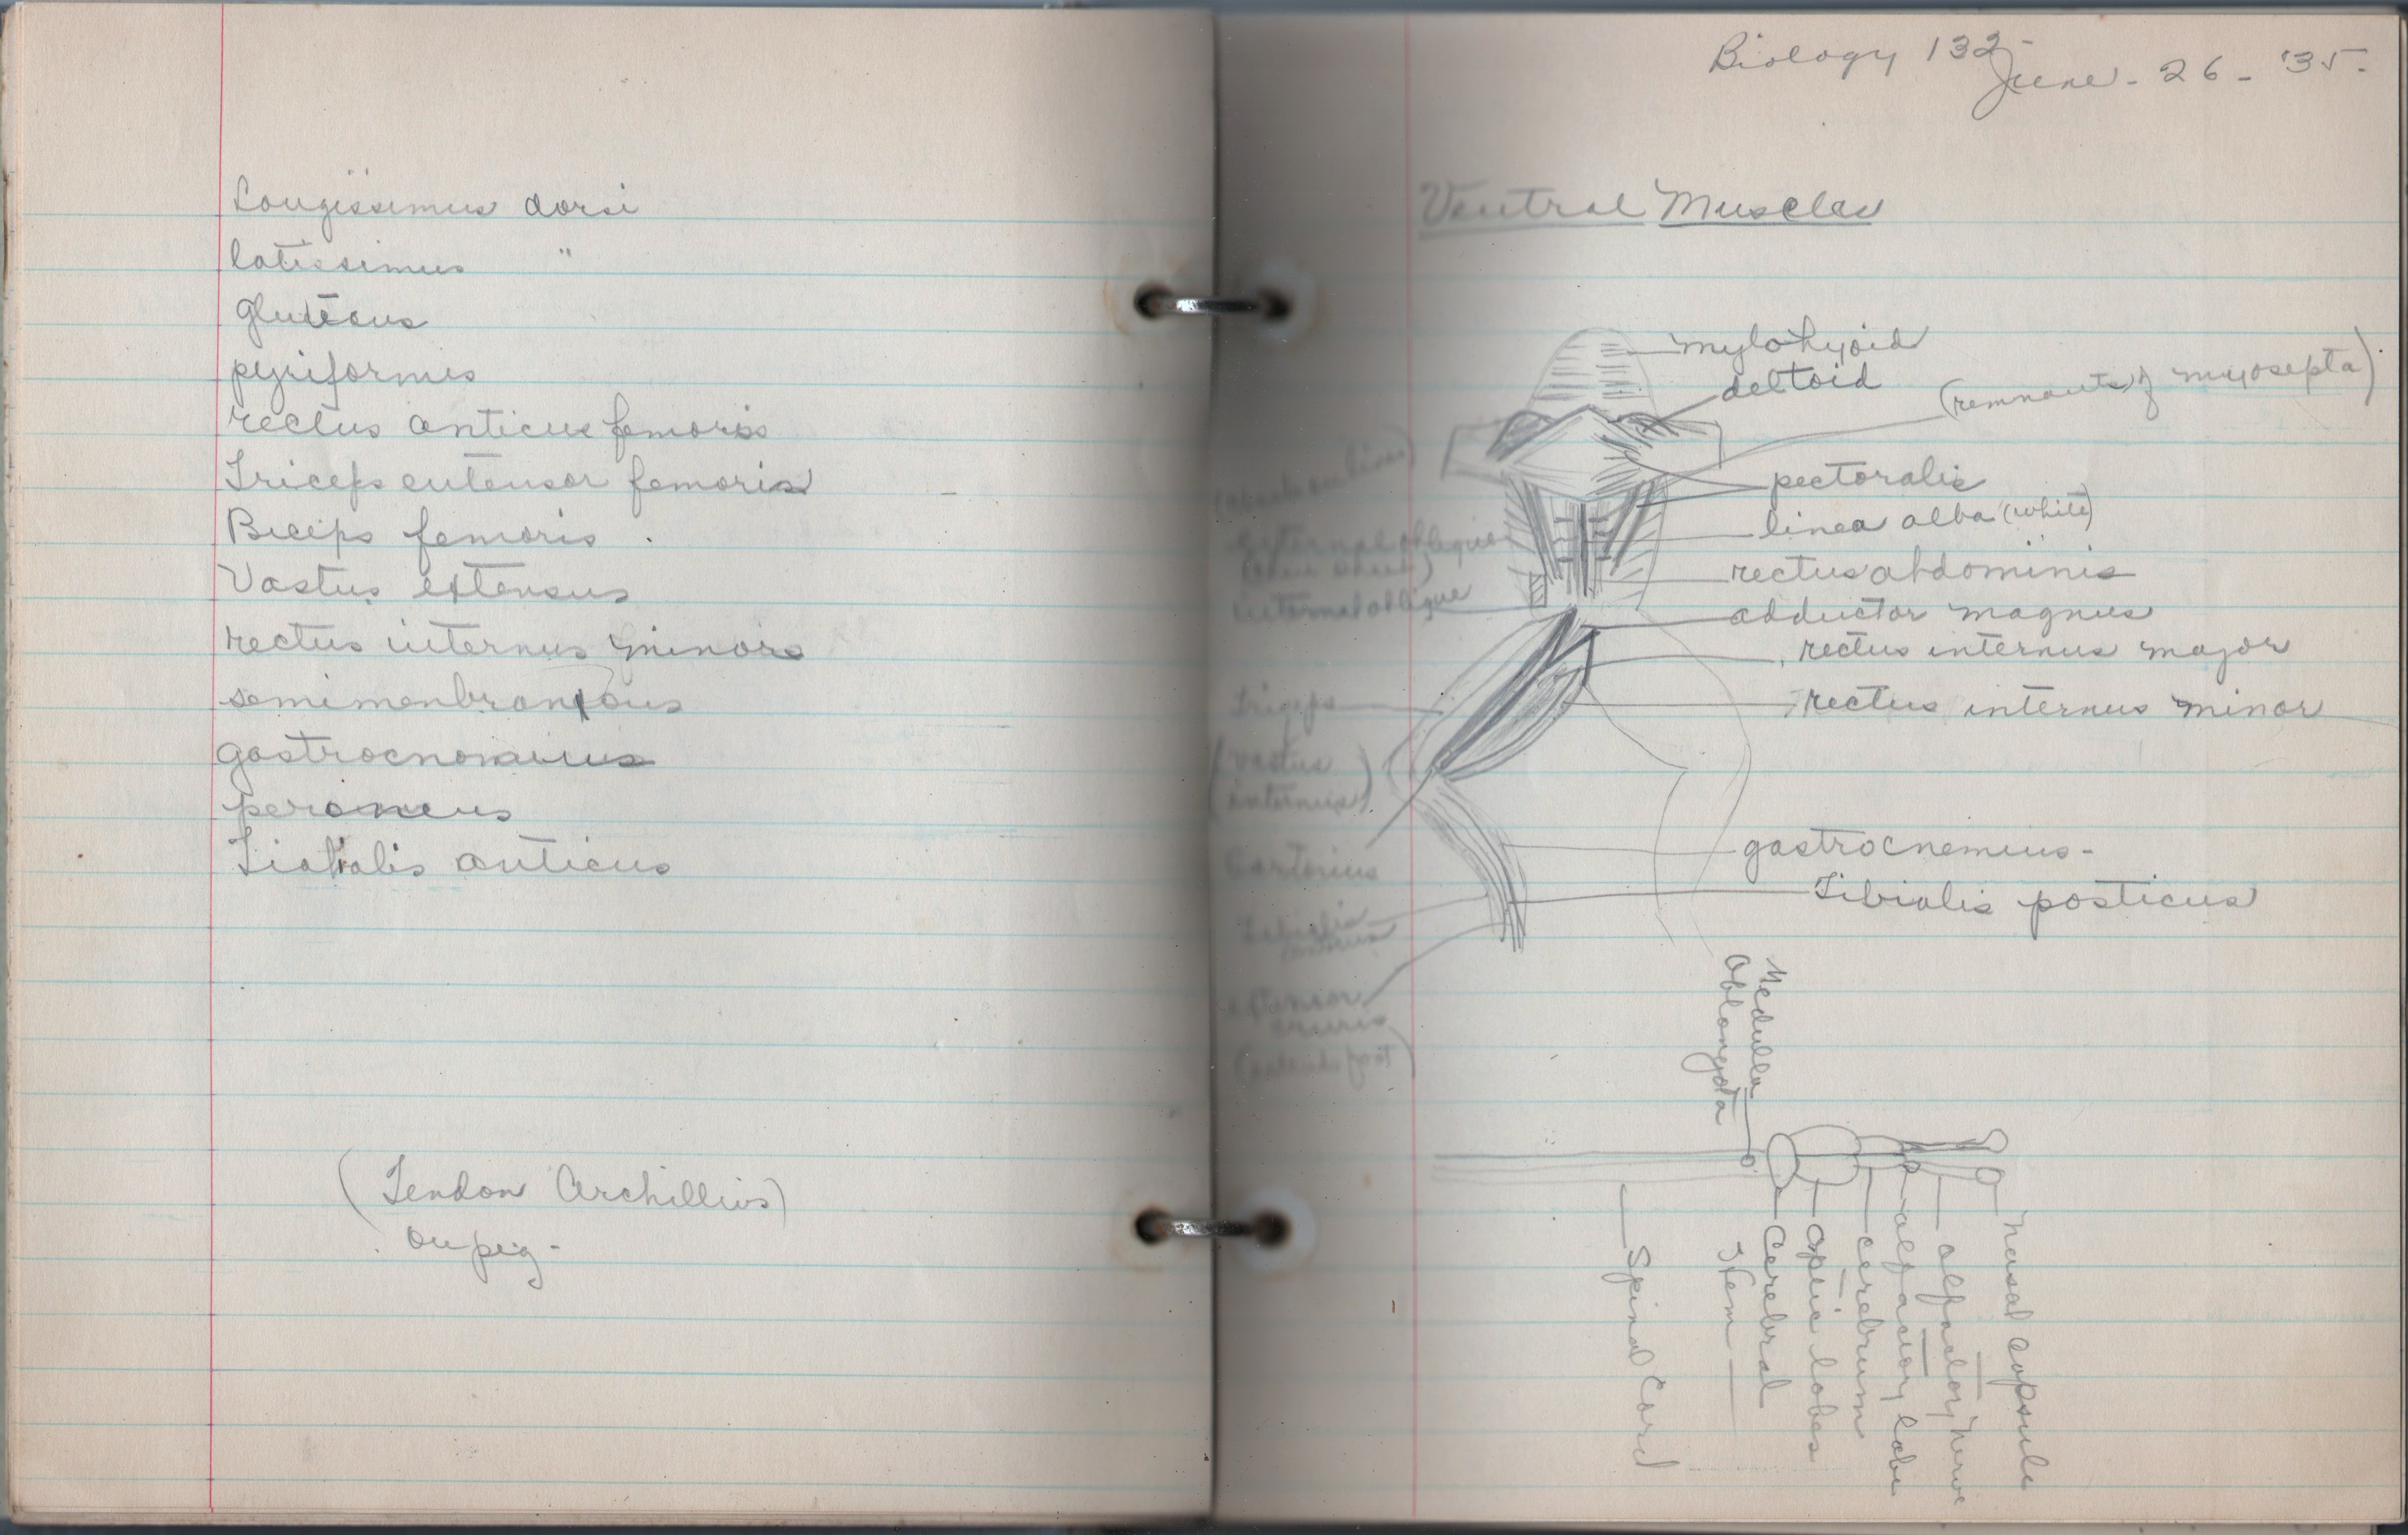 Longissimus dorsi
latissimus "
gluteous
pyriformis
rectus anticus femoris
Triceps extensor femoris
Biceps femoris
Vastus extensus
rectus internus minors
semimenbranous
gastrocnomius
peroneus
Tibialis anticus
(Tendon Archillius)
on pig-
Biology 132-
June - 26 - '35-
Ventral Muscles
mylohyoid
deltoid
(remnants of myosepta)
pectoralis
linea alba (white)
rectus abdominis
adductor magnus
rectus internus major
rectus internus minor
gastrocnemius-
Tibialis posticus
External oblique
internal oblique
Triceps
(vastus
internus)
Sartorius
Tibialis
anticus
extensor
cruris
Medulla
Oblongata
nasal capsule
olfactory nerve
olfactory lobe
cerebrum
optic lobes
Cerebral
Stem
Spinal Cord